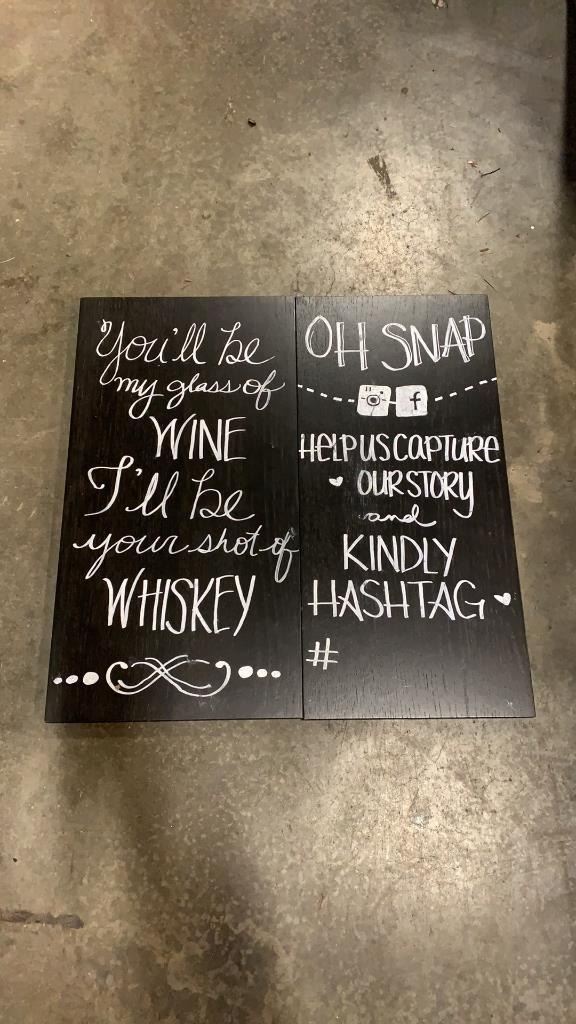 You'll be
my glass of
WINE
I'll be
your shot of
WHISKEY
OH SNAP
f
HELP US CAPTURE
OUR STORY
and
KINDLY
HASHTAG
#